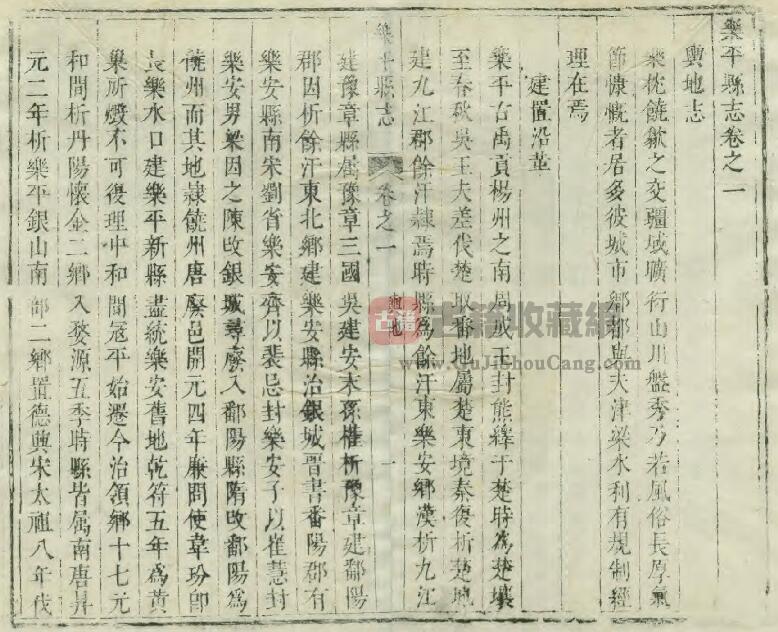 樂平縣志卷之一
輿地志
樂枕饒歙之交疆域曠衍山川盤秀乃若風俗長厚氣
節慷慨者居多彼城市鄉都與夫津梁水利有規制經
理在焉
建置沿革
樂平古禹貢楊州之南周成王封熊繹于楚時為楚壤
至春秋吳王夫差伐楚取番地屬楚東境秦復析楚地
建九江郡餘汗隸焉時縣為餘汗東樂安鄉漢析九江
樂平縣志
卷之一
輿地
一
建豫章縣屬豫章三國吳建安末孫權析豫章建鄱陽
郡因析餘汗東北鄉建樂安縣治銀城晉書番陽郡有
樂安縣南宋劉省樂安齊以裴忌封樂安子以崔慧封
樂安男梁因之陳改銀城尋廢入鄱陽縣隋改鄱陽為
饒州而其地隸饒州唐廢邑開元四年廉問使韋玢卽
長樂水口建樂平新縣盡統樂安舊地乾符五年為黃
巢所燬不可復理中和間寇平始遷今治領鄉十七元
和間析丹陽懷金二鄉入婺源五季時縣皆屬南唐昇
元二年析樂平銀山南部二鄉置德興宋太祖八年伐
古籍
古籍收藏網
www.GuJiShouCang.com